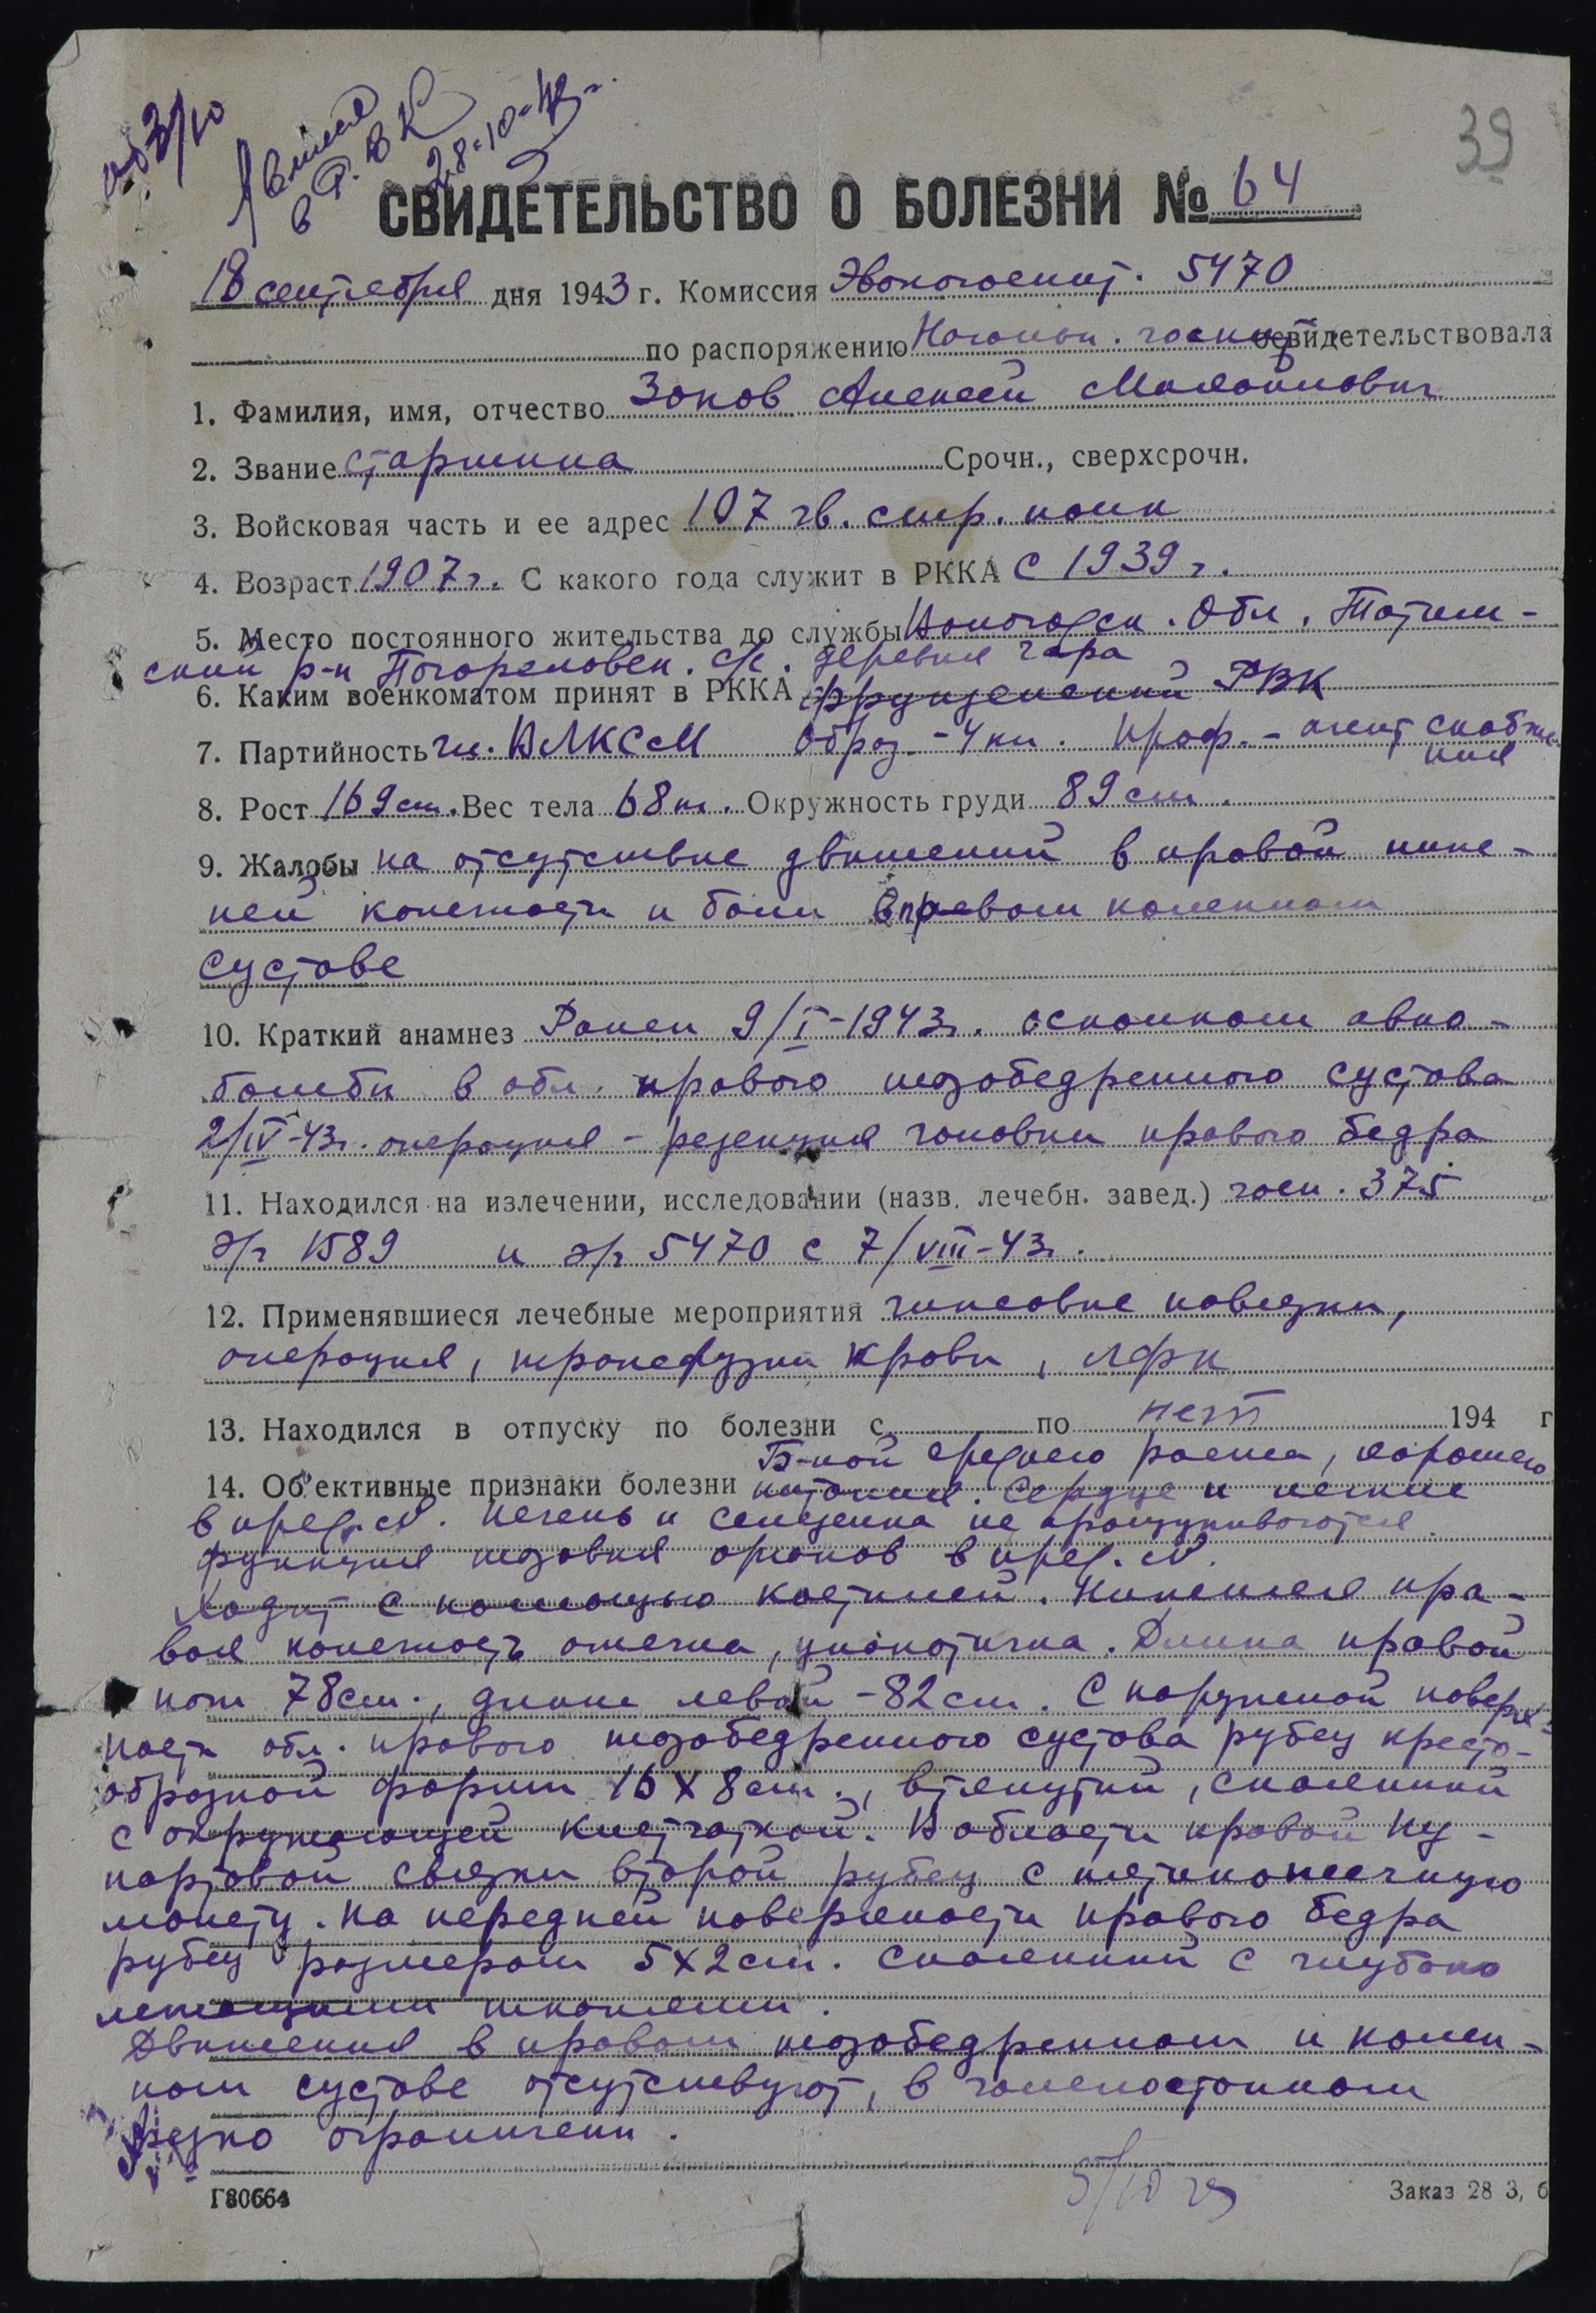 Явился
в Р.В.К.
28-10-43г.
39
СВИДЕТЕЛЬСТВО О БОЛЕЗНИ № 64
18 сентября дня 1943 г. Комиссия Эвакогоспит. 5470
по распоряжению Начальн. госпит. освидетельствовала
1. Фамилия, имя, отчество Зопов Алексей Михайлович
2. Звание старшина Срочн., сверхсрочн.
3. Войсковая часть и ее адрес 107 гв. стр. полк
4. Возраст 1907 г. С какого года служит в РККА с 1939 г.
5. Место постоянного жительства до службы Вологодск. Обл. Тотем-
ский р-н Погореловск. с/с. деревня гора
6. Каким военкоматом принят в РККА РВК
7. Партийность чл. ВЛКСМ Образ. - 4 кл. Проф. - агент снабже-
ния
8. Рост 169 см. Вес тела 68 кг. Окружность груди 89 см.
9. Жалобы на отсутствие движений в правой ниж-
ней конечности и боли в правом коленном
суставе
10. Краткий анамнез Ранен 9/I-1943г. осколком авиа-
бомбы в обл. правого тазобедренного сустава
2/IV-43г. операция - резекция головки правого бедра
11. Находился на излечении, исследовании (назв. лечебн. завед.) госп. 375
э/г 1589 и э/г 5470 с 7/VIII-43г.
12. Применявшиеся лечебные мероприятия гипсовые повязки,
операция, трансфузии крови, ЛФК
13. Находился в отпуску по болезни с по нет 194 г
14. Об'ективные признаки болезни Б-ной среднего роста, хорошего
питания. Сердце и легкие
в пред. N. Печень и селезенка не прощупываются.
Функция тазовых органов в пред. N.
Ходит с помощью костылей. Нижняя пра-
вая конечность отечна, цианотична. Длина правой
ноги 78см., длина левой - 82 см. С наружной поверх-
ности обл. правого тазобедренного сустава рубец кресто-
образной формы 16х8см., втянутый, спаянный
с окружающей клетчаткой. В области правой пу-
партовой связки второй рубец с пятикопеечную
монету. На передней поверхности правого бедра
рубец размером 5х2см. спаянный с глубоко
лежащими тканями.
Движения в правом тазобедренном и колен-
ном суставе отсутствуют, в голеностопном
резко ограничены.
Г80664
Заказ 28 3, б